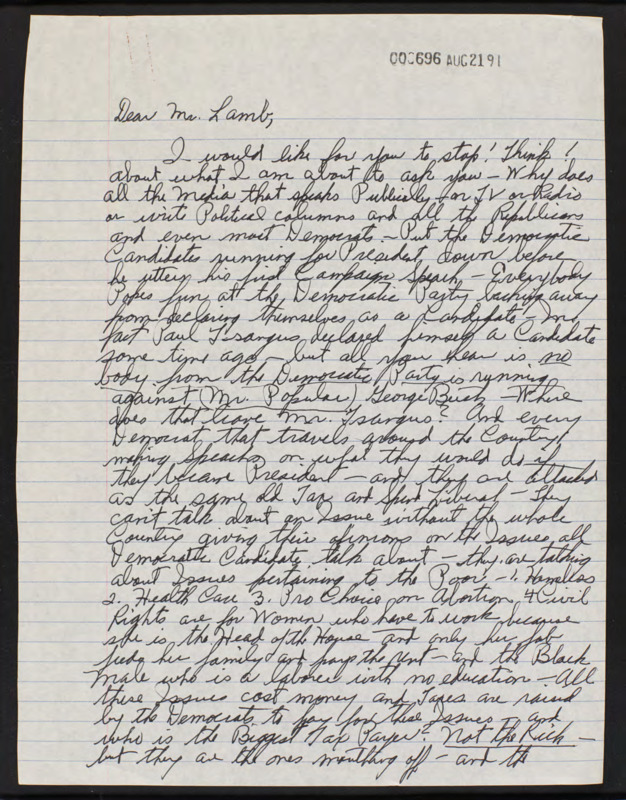 000696 AUG 21 91
Dear Mr. Lamb,
I would like for you to stop! Think!
about what I am about to ask you - Why does
all the Media that speaks Publically on TV or Radio
or write Political columns and all the Republicans
and even most Democrats - Put the Democratic
Candidates running for President down before
he utters his first Campaign Speach - Everybody
Pokes fun at the Democratic Party backing away
from declaring themselves as a Candidate - In
fact Paul Tsangus declared himself a Candidate
some time ago - but all you hear is no
body from the Democratic Party is running
against (Mr. Popular) George Bush - Where
does that leave Mr. Tsangus? And every
Democrat that travels around the Country
making Speachs on what they would do if
they became President - and they are attacked
as the same old Tax and Spend Liberal - They
can't talk about an Issue without the whole
Country giving their opinions on the Issues all
Democratic Candidate talk about - they are talking
about Issues pertaining to the Poor - 1. Homeless
2. Health Care 3. Pro Choice on Abortion, 4 Civil
Rights are for Women who have to work because
she is the Head of the House - and only her Job
feeds her family and pays the rent - and the Black
Male who is a laborer with no education - All
these Issues cost money and Taxes are raised
by the Democrats to pay for these Issues - and
who is the Biggest Tax Payer? Not the Rich -
but they are the ones mouthing off - and the